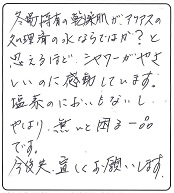 冬場特有の乾燥肌がアリアスの
処理済の水ならではか？と
思えるほど、シャワーがやさし
いのに感動しています。
塩素のにおいもないし
やはり、無いと困る一品
です。
今後共、宜しくお願いします。